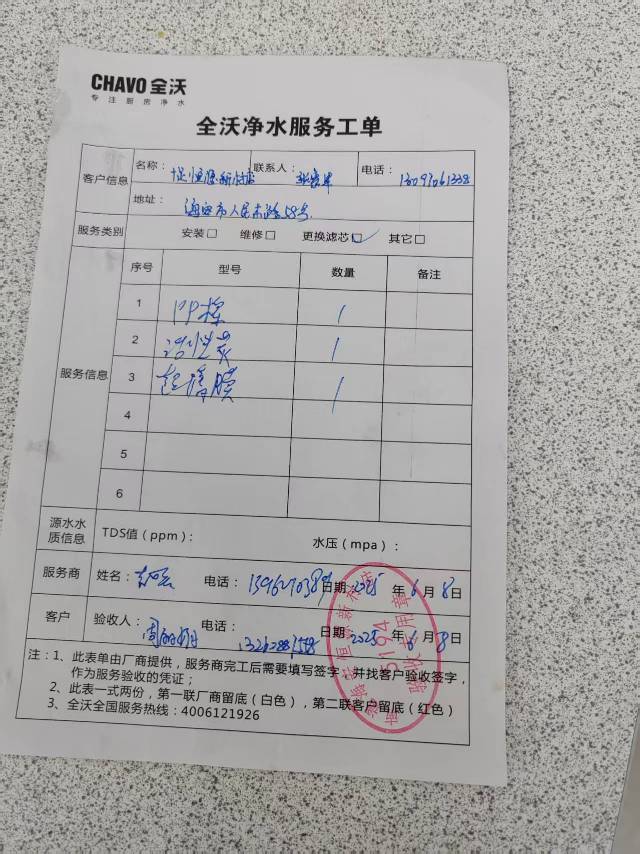 CHAVO 全沃
专注厨房净水
全沃净水服务工单
客户信息
名称：
联系人：
电话：
地址： 海安市人民东路58号
服务类别 安装□ 维修□ 更换滤芯□✓ 其它□
服务信息
序号 型号 数量 备注
1 PP棉 1
2 活性炭 1
3 超滤膜 1
4
5
6
源水水质信息 TDS值（ppm）： 水压（mpa）：
服务商 姓名： 电话： 日期 2025 年 6 月 8 日
客户 验收人： 电话： 日期 2025 年 6 月 8 日
注：1、此表单由厂商提供，服务商完工后需要填写签字，并找客户验收签字，
作为服务验收的凭证；
2、此表一式两份，第一联厂商留底（白色），第二联客户留底（红色）
3、全沃全国服务热线：4006121926
5194
验收专用章